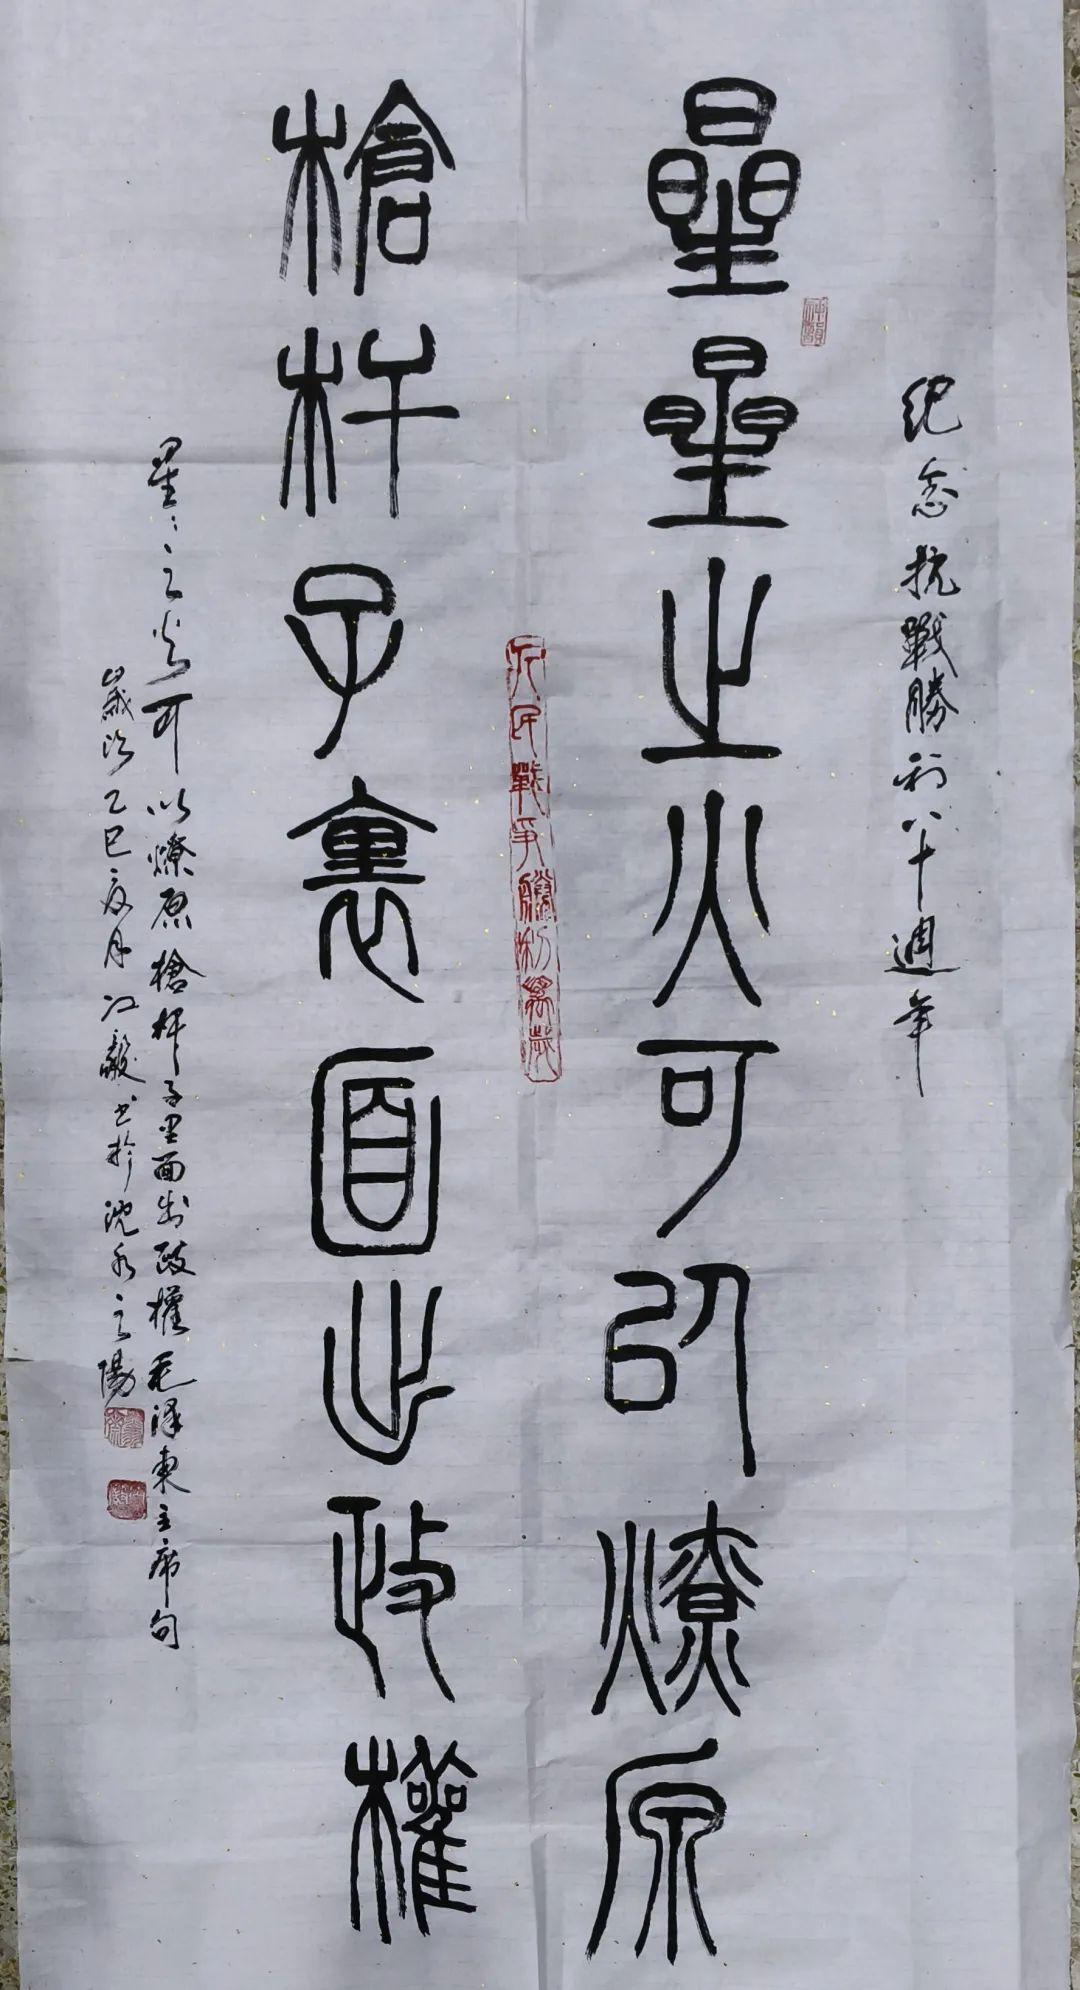 紀念抗戰勝利八十週年
星星之火可以燎原
人民戰爭勝利萬歲
槍杆子裏面出政權
星星之火可以燎原槍杆子里面出政權毛泽東主席句
歲次乙巳夏月江毅书於沈水之陽